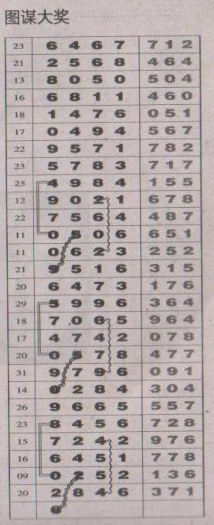 图谋大奖
23 6 4 6 7 7 1 2
21 2 5 6 8 4 6 4
13 8 0 5 0 5 0 4
16 6 8 1 1 4 6 0
18 1 4 7 6 0 5 1
17 0 4 9 4 5 6 7
22 9 5 7 1 7 8 2
23 5 7 8 3 7 1 7
25 4 9 8 4 1 5 5
12 9 0 2 1 6 7 8
22 7 5 6 4 4 8 7
11 0 5 0 6 6 5 1
11 0 6 2 3 2 5 2
21 9 5 1 6 3 1 5
20 6 4 7 3 1 7 6
29 5 9 9 6 3 6 4
18 7 0 6 5 9 6 4
17 4 7 4 2 0 7 8
20 0 5 7 8 4 7 7
31 9 7 9 6 0 9 1
14 0 2 8 4 3 0 4
26 9 6 6 5 5 5 7
23 8 4 5 6 7 2 8
15 7 2 4 2 9 7 6
16 6 4 5 1 7 7 8
09 0 2 5 2 1 3 6
20 2 8 4 6 3 7 1